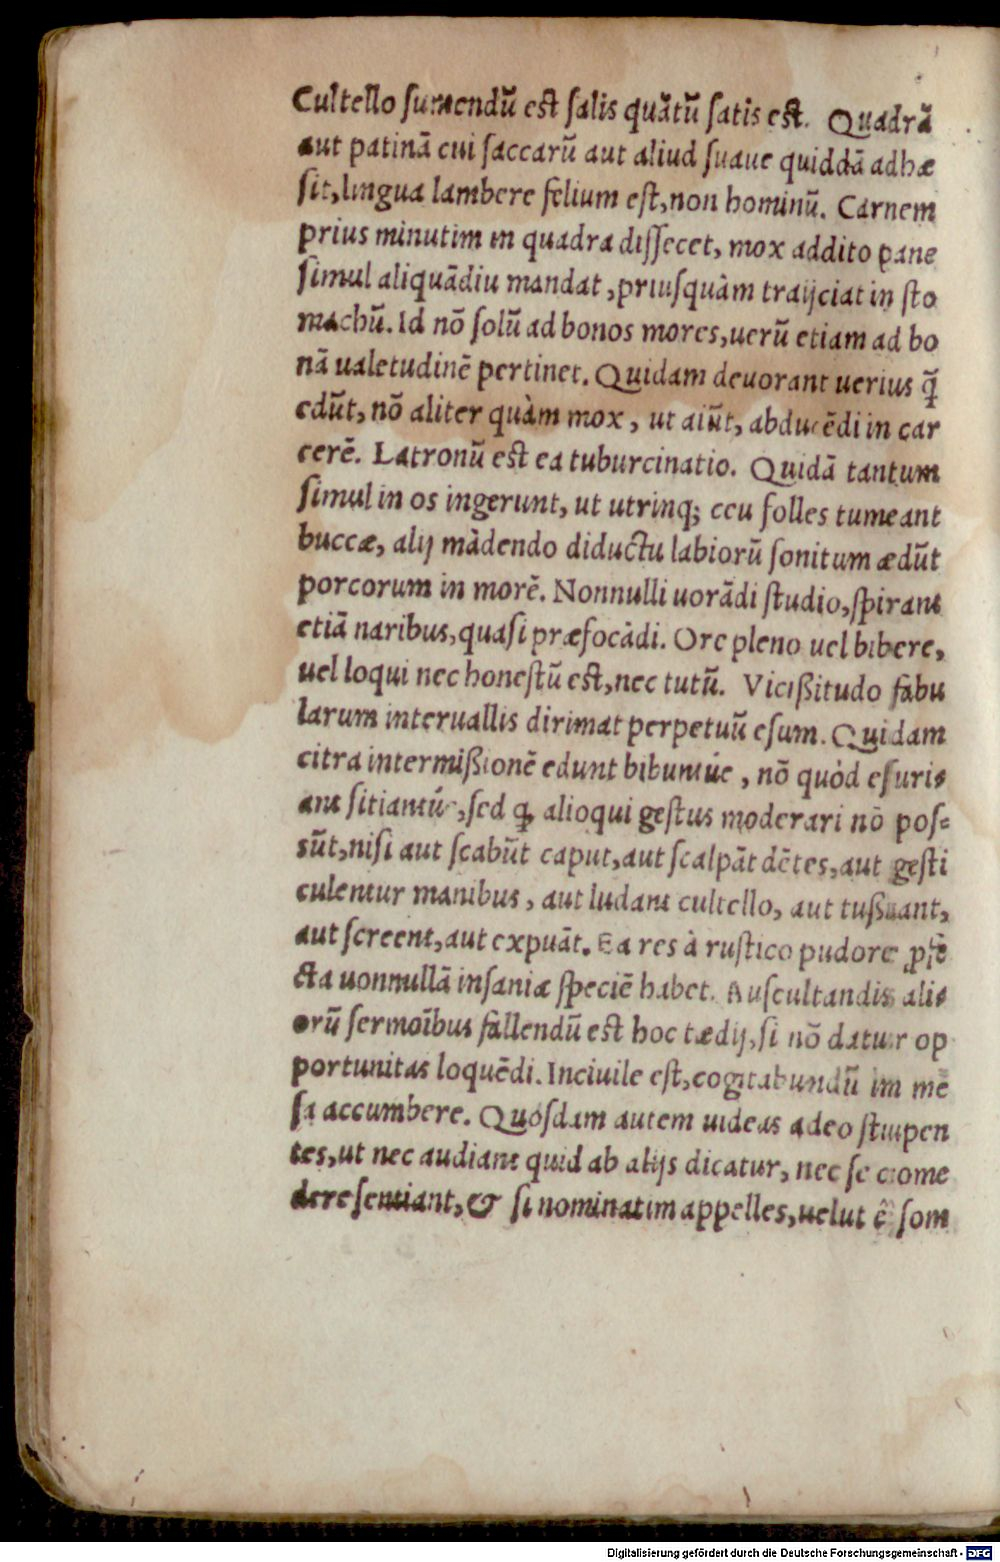 Cultello sumendũ est salis quãtũ satis est. Quadrã
aut patinã cui saccarũ aut aliud suaue quiddã adhæ
sit, lingua lambere felium est, non hominũ. Carnem
prius minutim in quadra dissecet, mox addito pane
simul aliquãdiu mandat, priusquàm traijciat in sto
machũ. Id nõ solũ ad bonos mores, uerũ etiam ad bo
nã ualetudinẽ pertinet. Quidam deuorant uerius q̃
edũt, nõ aliter quàm mox, ut aiũt, abducẽdi in car
cerẽ. Latronũ est ea tuburcinatio. Quidã tantum
simul in os ingerunt, ut utrinq; ceu folles tumeant
buccæ, alij mãdendo diductu labiorũ sonitum ædũt
porcorum in morẽ. Nonnulli uorãdi studio, spirant
etiã naribus, quasi præfocãdi. Ore pleno uel bibere,
uel loqui nec honestũ est, nec tutũ. Vicißitudo fabu
larum interuallis dirimat perpetuũ esum. Quidam
citra intermißionẽ edunt bibuntúe, nõ quòd esuri⸗
ant sitiantúe, sed ꝙ alioqui gestus moderari nõ pos⸗
sũt, nisi aut scabũt caput, aut scalpãt dẽtes, aut gesti
culentur manibus, aut ludant cultello, aut tußiant,
aut screent, aut expuãt. Ea res à rustico pudore ꝓfe
cta uonnullã insaniæ speciẽ habet. Auscultandis ali⸗
orũ sermoĩbus fallendũ est hoc tædij, si nõ datur op
portunitas loquẽdi. Inciuile est, cogitabundũ im mẽ
sa accumbere. Quósdam autem uideas adeo stupen
tes, ut nec audiant quid ab alijs dicatur, nec se come
dere sentiant, & si nominatim appelles, uelut ẽ som
Digitalisierung gefördert durch die Deutsche Forschungsgemeinschaft - DFG